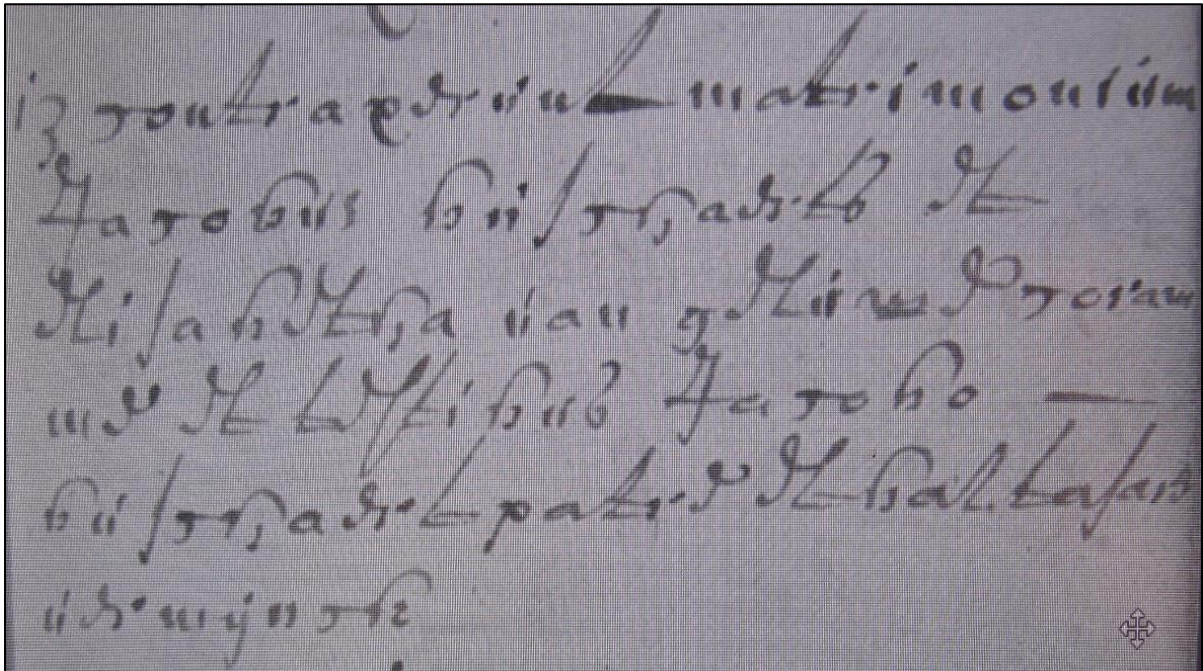 13 contraxerunt matrimonium
Jacobus buschaerts et
Elisabetha van geluwe coram
me et testibus Jacobo —
buschaert patre et baltasare
verwijnck